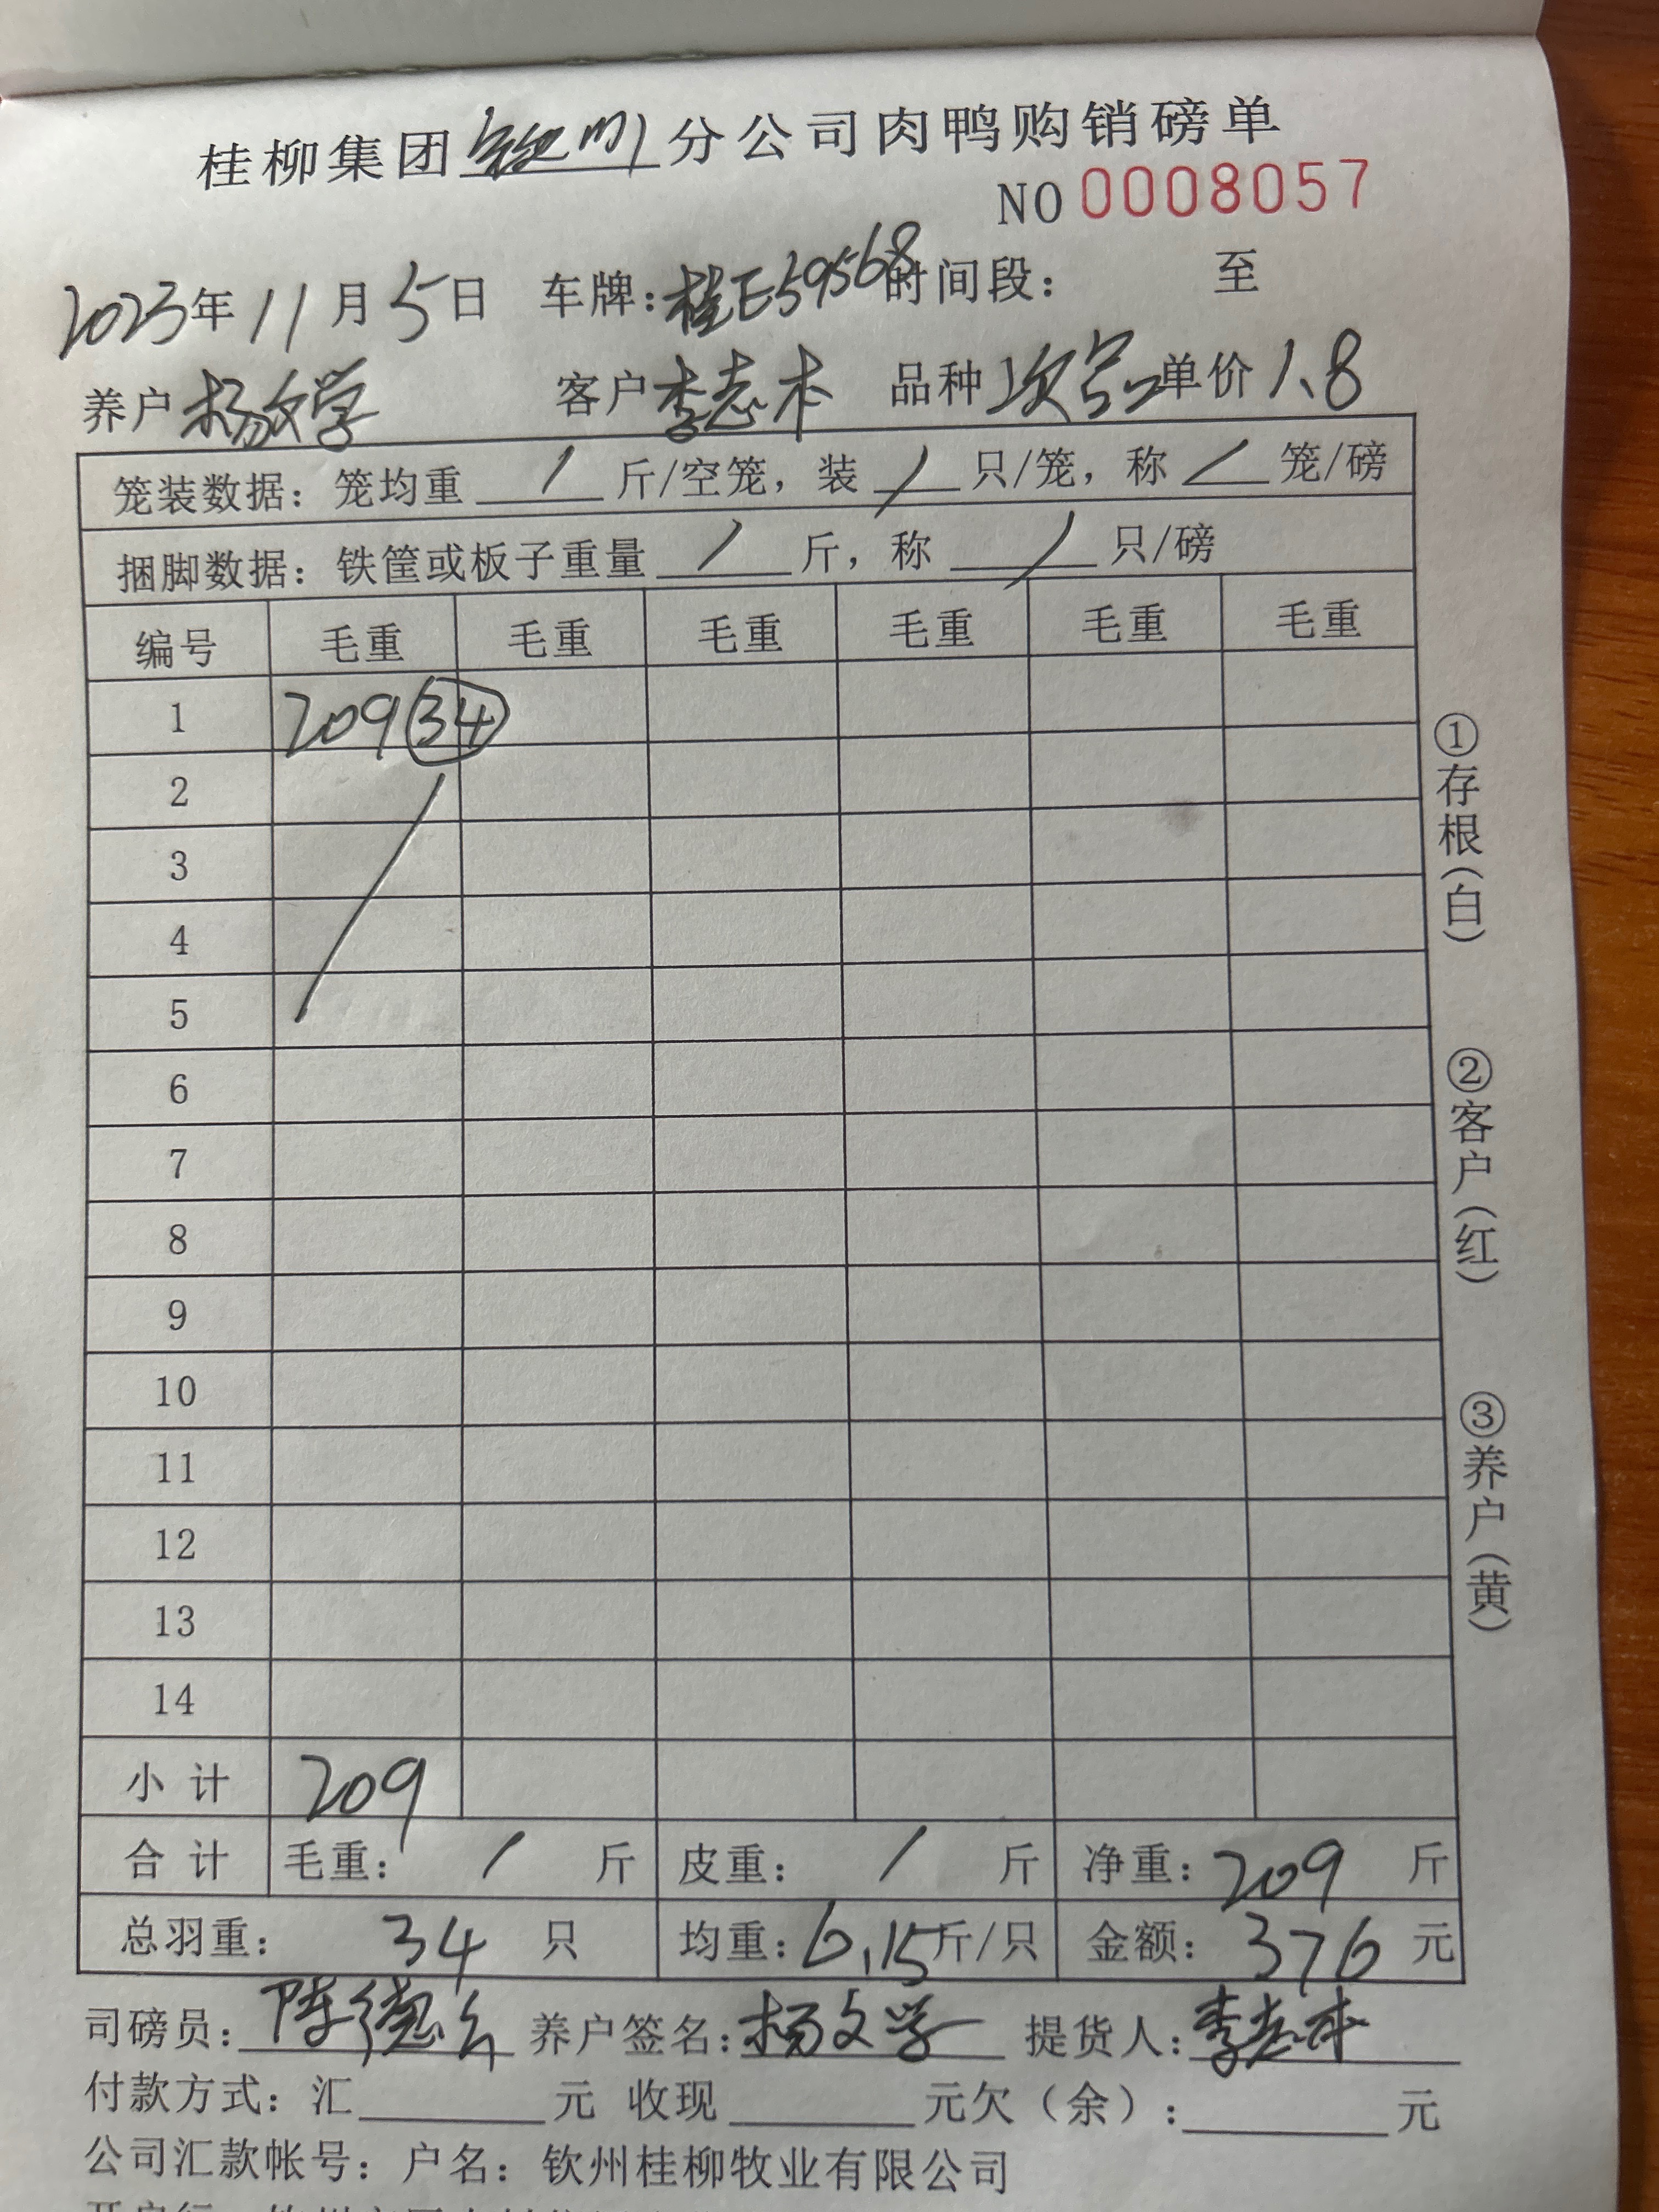 桂柳集团钦州分公司肉鸭购销磅单
NO 0008057
2023年11月5日 车牌:桂E59568 时间段: 至
养户 杨文学 客户 李志本 品种 次品 单价 1.8
笼装数据: 笼均重 / 斤/空笼, 装 / 只/笼, 称 / 笼/磅
捆脚数据: 铁筐或板子重量 / 斤, 称 / 只/磅
编号 毛重 毛重 毛重 毛重 毛重 毛重
1 209 34
2
3
4
5
6
7
8
9
10
11
12
13
14
小计 209
合计 毛重: / 斤 皮重: / 斤 净重: 209 斤
总羽重: 34 只 均重: 6.15 斤/只 金额: 376 元
司磅员: 陈德 养户签名: 杨文学 提货人: 李志本
付款方式: 汇 元 收现 元欠(余): 元
公司汇款帐号: 户名: 钦州桂柳牧业有限公司
①存根(白)
②客户(红)
③养户(黄)